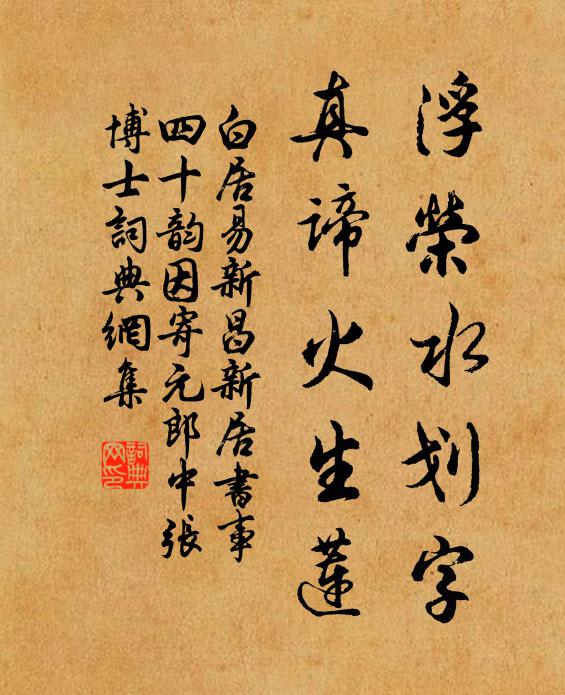 浮榮水划字
真諦火生蓮
白居易新昌新居書事
四十韵因寄元郎中張
博士詞典網集
詞典网印